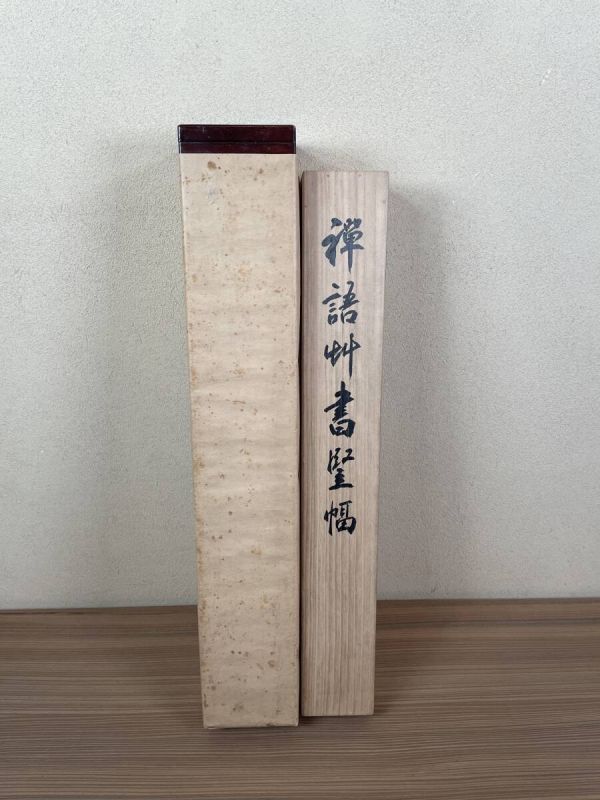 禪語艸書竪幅